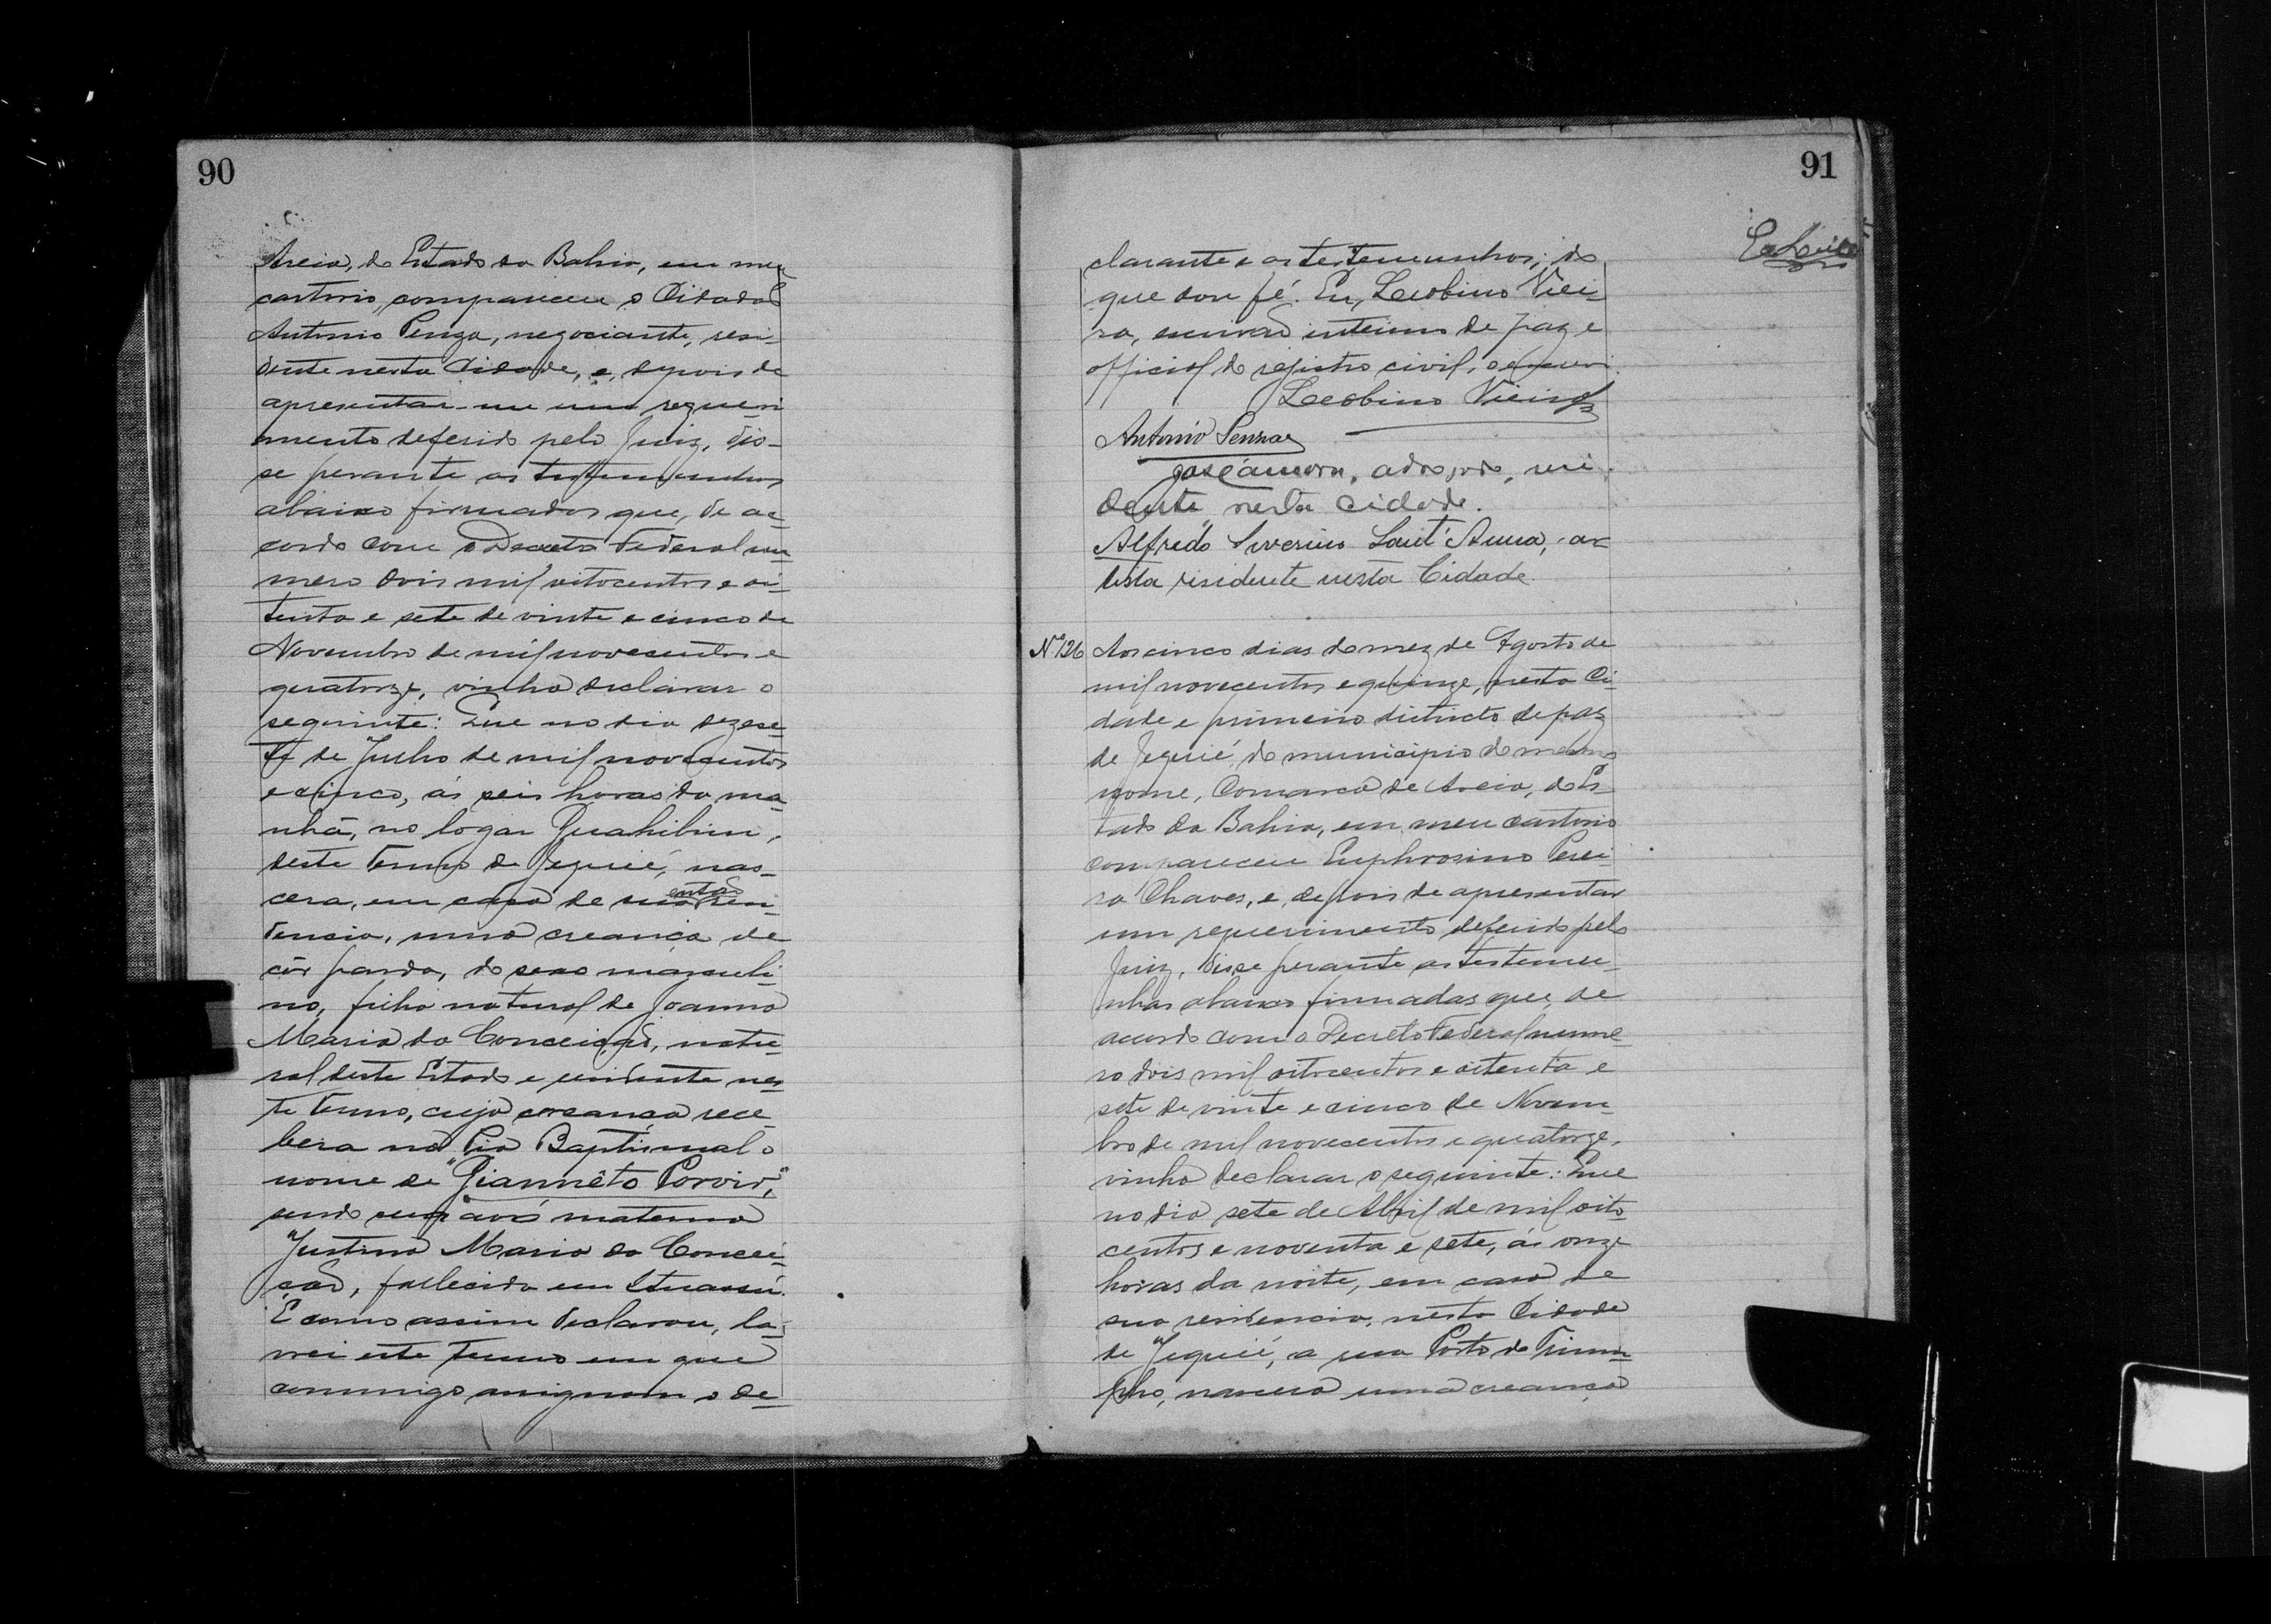 90
Areia, do Estado da Bahia, em meu
cartorio, compareceu o Cidadaõ
Antonio Penza, negociante, resi-
dente nesta Cidade, e, depois de
apresentar-me um requeri-
mento deferido pelo Juiz, dis-
se perante as testemunhas
abaixo firmadas que, de ac-
cordo com o Decreto Federal nu-
mero dois mil oitocentos e oi-
tenta e sete de vinte e cinco de
Novembro de mil novecentos e
quatorze, vinha declarar o
seguinte: Que no dia dezese-
te de Julho de mil novecentos
e cinco, ás seis horas da ma-
nhã, no logar
deste Termo de Jequié, nas-
cera, em casa de sua entaõ resi-
dencia, uma creança de
côr parda, do sexo masculi-
no, filho natural de Joanna
Maria da Conceiçaõ, natu-
ral deste Estado e residente nes-
te Termo, cuja creança rece-
bera na Pia Baptismal o
nome de "Giannêto Porvir,"
sendo seus avós materna
Justina Maria da Concei-
çaõ, fallecida em Ituassú.
E como assim declarou, la-
vrei este termo em que
commigo assignam o de-
91
clarante e as testemunhas; do
que dou fé. Eu, Leobino Viei-
ra, escrivaõ interino de paz e
official do registro civil, o escrevi.
Leobino Vieira
Antonio Penza
José advogado, resi-
dente nesta cidade.
Alfredo Severino Sant'Anna, ar-
tista residente nesta Cidade.
Nº 126 Aos cinco dias do mez de Agosto de
mil novecentos e quinze, nesta Ci-
dade e primeiro districto de paz
de Jequié, do municipio do mesmo
nome, Comarca de Areia, do Es-
tado da Bahia, em meu cartorio
compareceu Euphrosino Perei-
ra Chaves, e, depois de apresentar
um requerimento deferido pelo
Juiz, disse perante as testemu-
nhas abaixo firmadas que, de
acordo com o Decreto Federal nume-
ro dois mil oitocentos e oitenta e
sete de vinte e cinco de Novem-
bro de mil novecentos e quatorze,
vinha declarar o seguinte: Que
no dia sete de Abril de mil oito-
centos e noventa e sete, ás onze
horas da noite, em casa de
sua residencia, nesta Cidade
de Jequié, a rua Porto do Trium-
pho, nascera uma creança